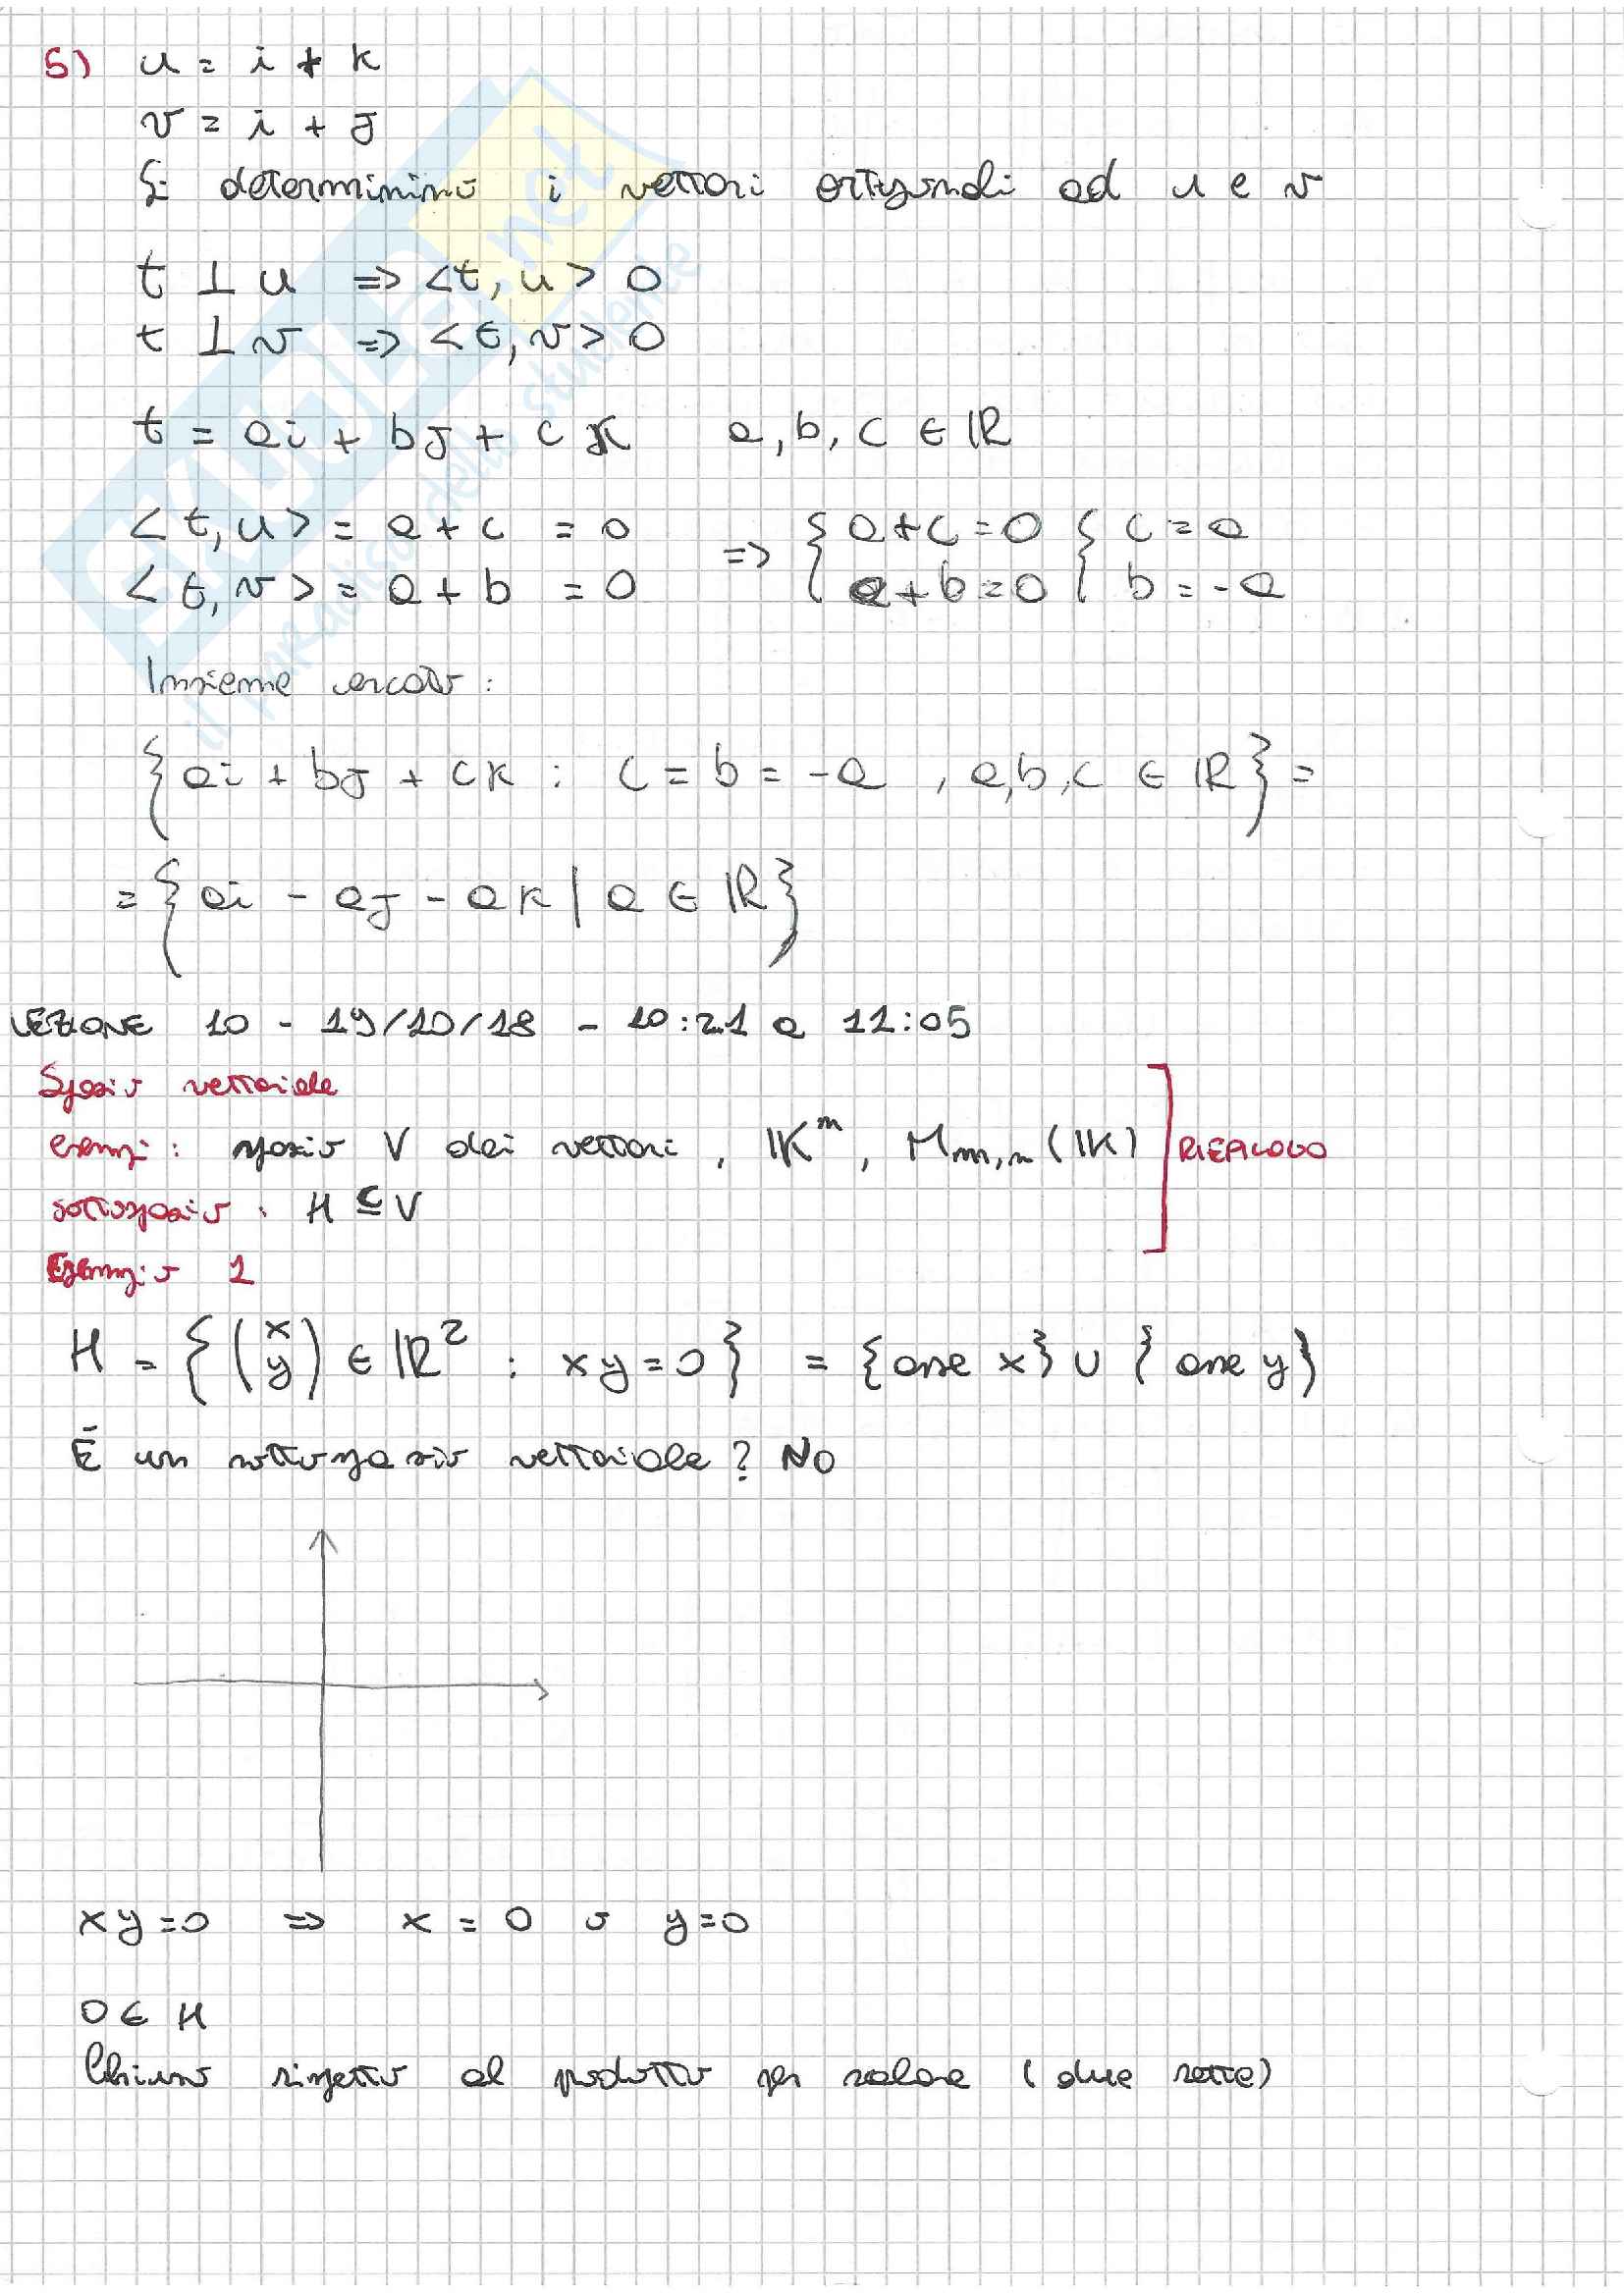 5) u = i + k
v = i + j
Si determinino i vettori ortogonali ad u e v
t ⊥ u => <t, u> 0
t ⊥ v => <t, v> 0
t = ai + bj + ck a, b, c ∈ ℝ
<t, u> = a + c = 0 => { a + c = 0 { c = a
<t, v> = a + b = 0 a + b = 0 b = -a
Insieme cercato:
{ ai + bj + ck : c = b = -a , a,b,c ∈ ℝ } =
= { ai - aj - ak | a ∈ ℝ }
LEZIONE 10 - 19/10/18 - 10:21 a 11:05
Spazio vettoriale
esempi: spazio V dei vettori, 𝕂ⁿ, Mm,n (𝕂) ] RIEPILOGO
sottospazio: H ⊆ V
Esempio 1
H = { (x y) ∈ ℝ² : xy = 0 } = {asse x} ∪ {asse y}
È un sottospazio vettoriale? NO
xy = 0 => x = 0 o y = 0
0 ∈ H
Chiuso rispetto al prodotto per scalare (due rette)
EKUEA.net
il paradiso dello studente